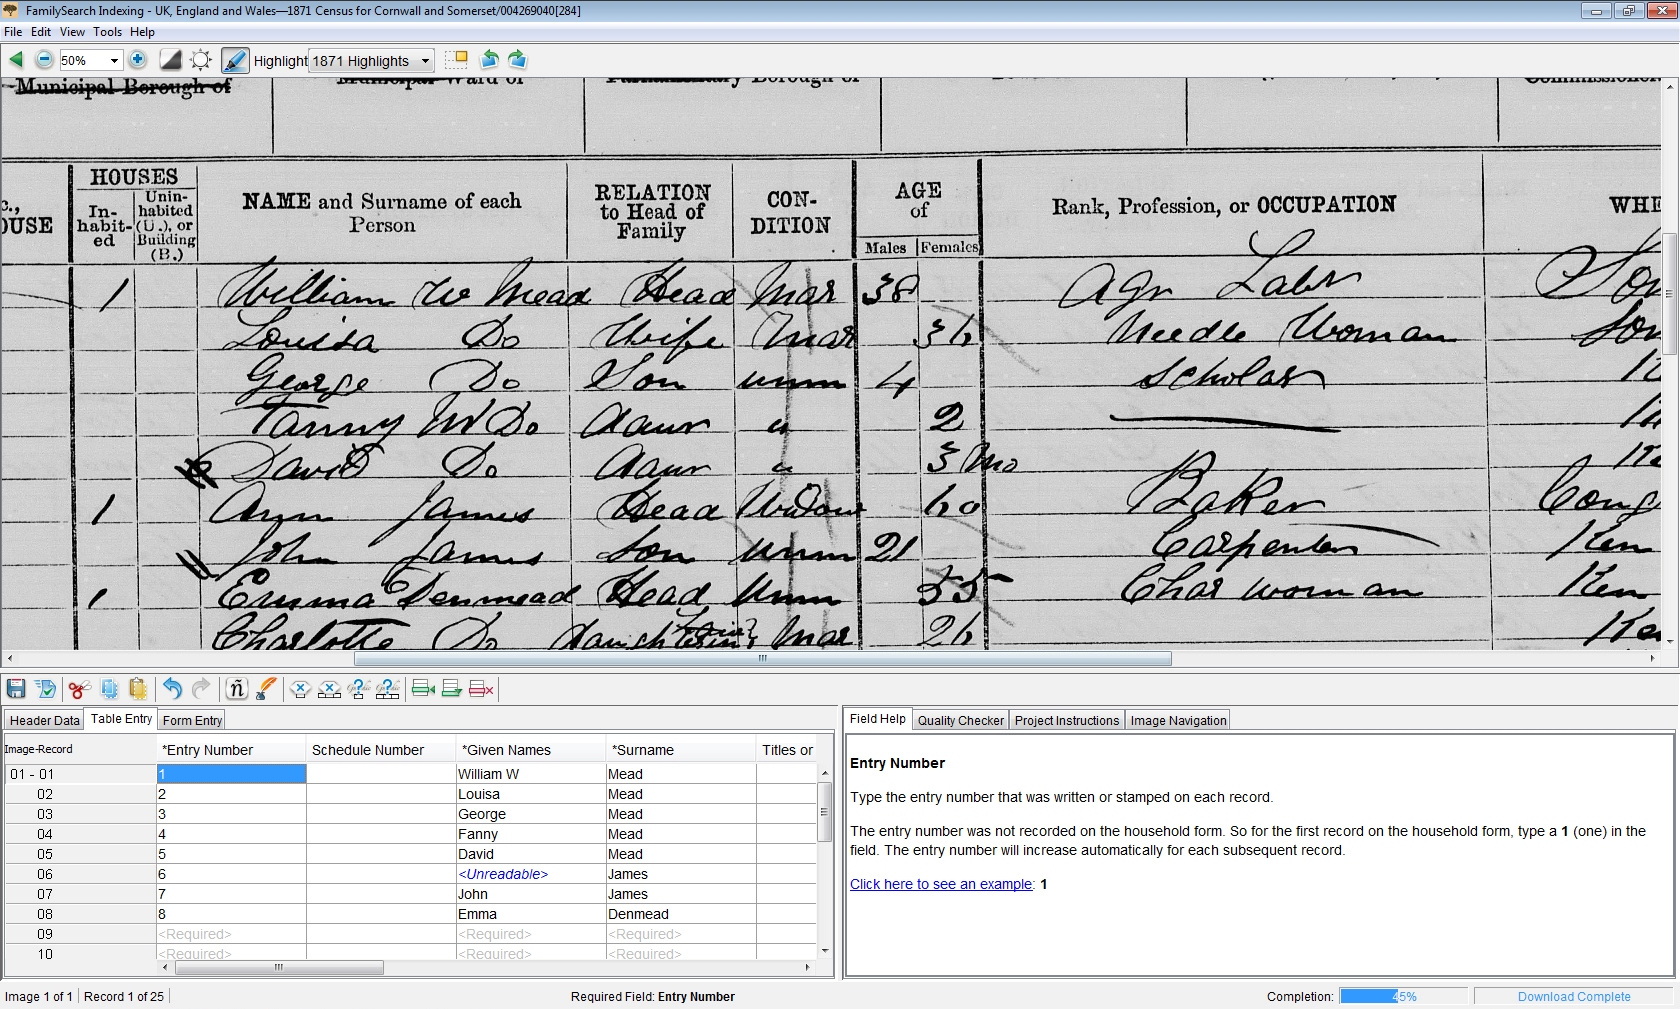 FamilySearch Indexing - UK, England and Wales—1871 Census for Cornwall and Somerset/004269040[284]
File Edit View Tools Help
50% Highlight 1871 Highlights
Municipal Borough of Municipal Ward of Parliamentary Borough of
HOUSES
In-habit-ed
Unin-habited (U.), or Building (B.)
NAME and Surname of each Person
RELATION to Head of Family
CON-DITION
AGE of
Males Females
Rank, Profession, or OCCUPATION
WHE
1 William W Mead Head Mar 38 Agr Labr Som
Louisa Do Wife Mar 36 Needle Woman Som
George Do Son unm 4 Scholar
Fanny W Do Daur " 2
David Do Daur " 3 Mo
1 Ann James Head Widow 60 Baker Cong
John James Son Unm 21 Carpenter
1 Emma Denmead Head Unm 55 Char woman
Charlotte Do Mar 26
Header Data Table Entry Form Entry
Image-Record *Entry Number Schedule Number *Given Names *Surname Titles or
01 - 01 1 William W Mead
02 2 Louisa Mead
03 3 George Mead
04 4 Fanny Mead
05 5 David Mead
06 6 <Unreadable> James
07 7 John James
08 8 Emma Denmead
09 <Required> <Required> <Required>
10 <Required> <Required> <Required>
Field Help Quality Checker Project Instructions Image Navigation
Entry Number
Type the entry number that was written or stamped on each record.
The entry number was not recorded on the household form. So for the first record on the household form, type a 1 (one) in the
field. The entry number will increase automatically for each subsequent record.
Click here to see an example: 1
Image 1 of 1 Record 1 of 25 Required Field: Entry Number Completion: 45% Download Complete